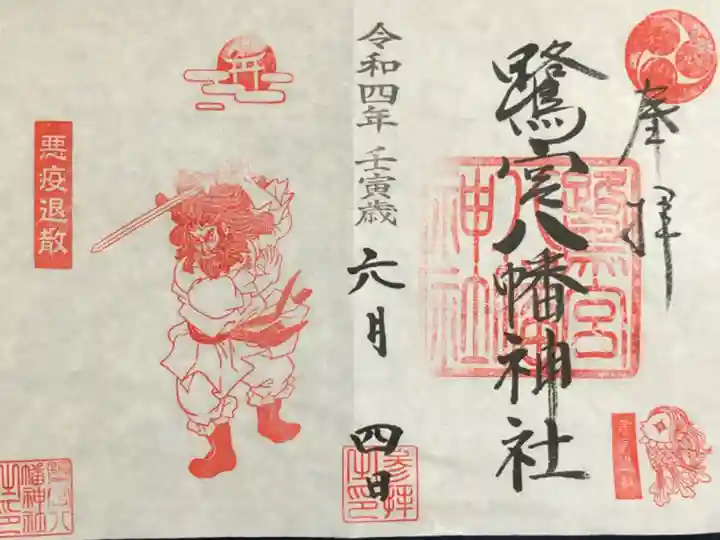 奉拝
鷺宮八幡神社
鷺宮八幡神社
令和四年 壬寅歳 六月 四日
参拝之印
悪疫退散
鷺宮八幡神社之印